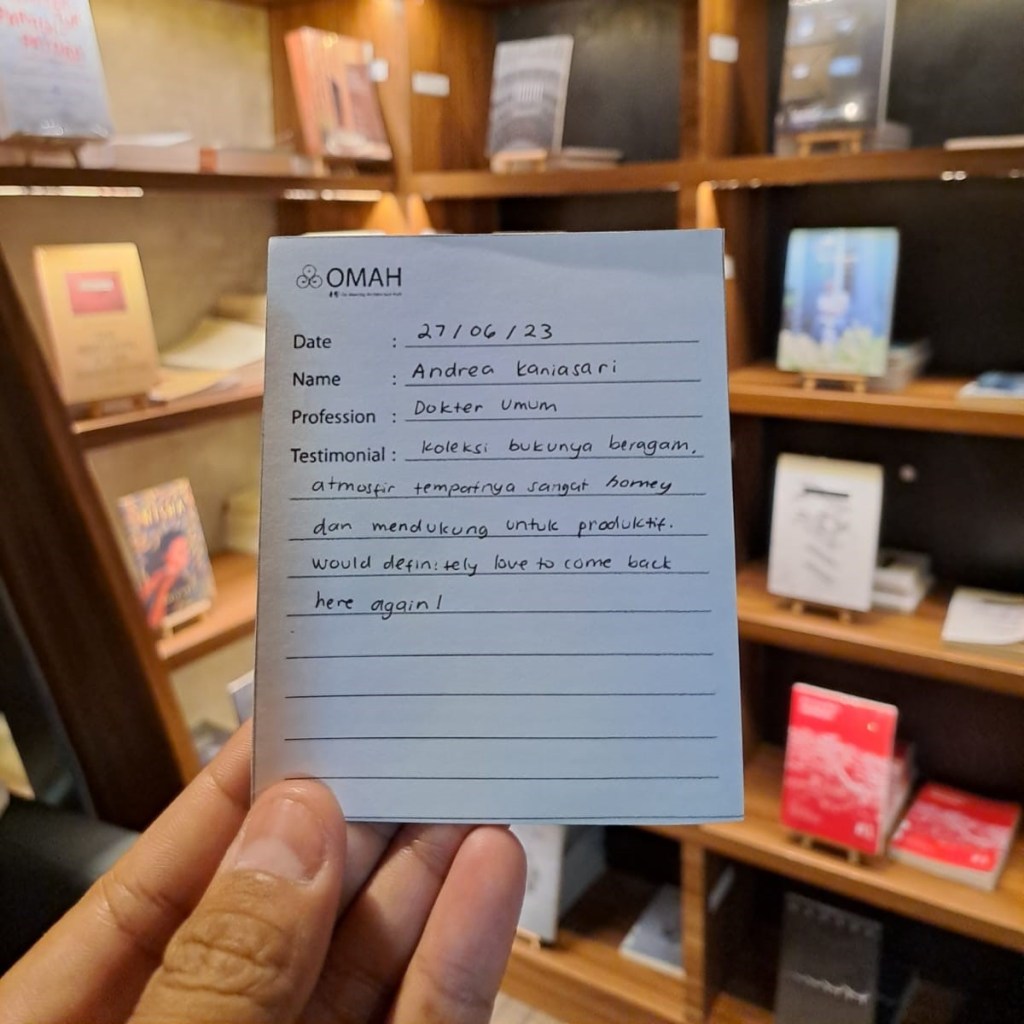 OMAH
Date : 27/06/23
Name : Andrea Kaniasari
Profession : Dokter Umum
Testimonial : Koleksi bukunya beragam,
atmosfir tempatnya sangat homey
dan mendukung untuk produktif.
Would definitely love to come back
here again!